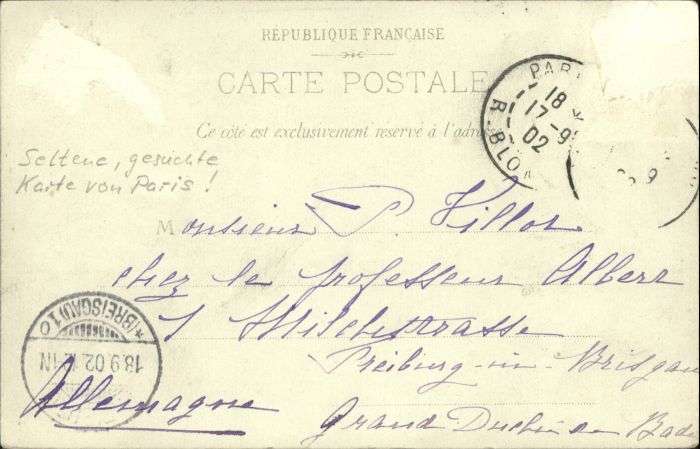 RÉPUBLIQUE FRANÇAISE
CARTE POSTALE
Ce côté est exclusivement réservé à l'adresse
PARI
18
17 -9
02
R. BLO
9
Seltene, gesuchte
Karte von Paris !
Monsieur P. Villot
chez le professeur Albert
1 Milchstrasse
Freiburg-in-Brisgau
Allemagne
Grand Duché de Bade
* (BREISGAU) 1 o
18 9 02 12-1N